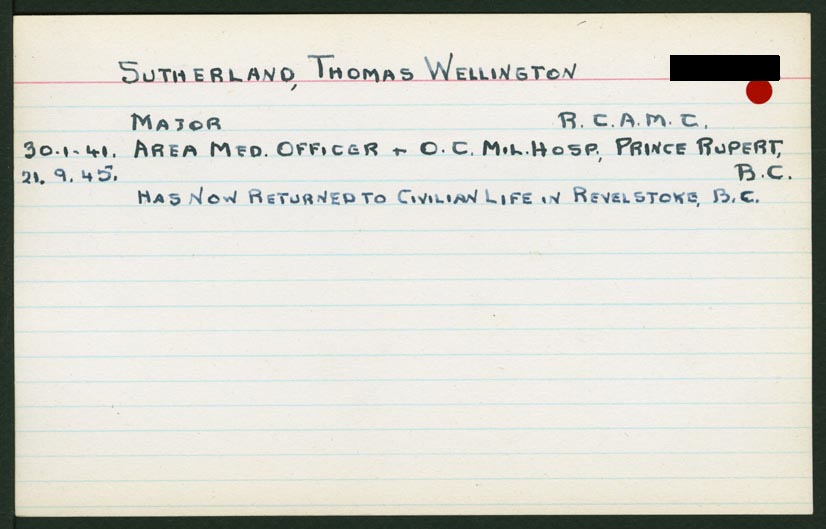 SUTHERLAND, THOMAS WELLINGTON
MAJOR R.C.A.M.C.
30.1.41. AREA MED. OFFICER + O.C. MIL. HOSP., PRINCE RUPERT,
21.9.45. B.C.
HAS NOW RETURNED TO CIVILIAN LIFE IN REVELSTOKE, B.C.